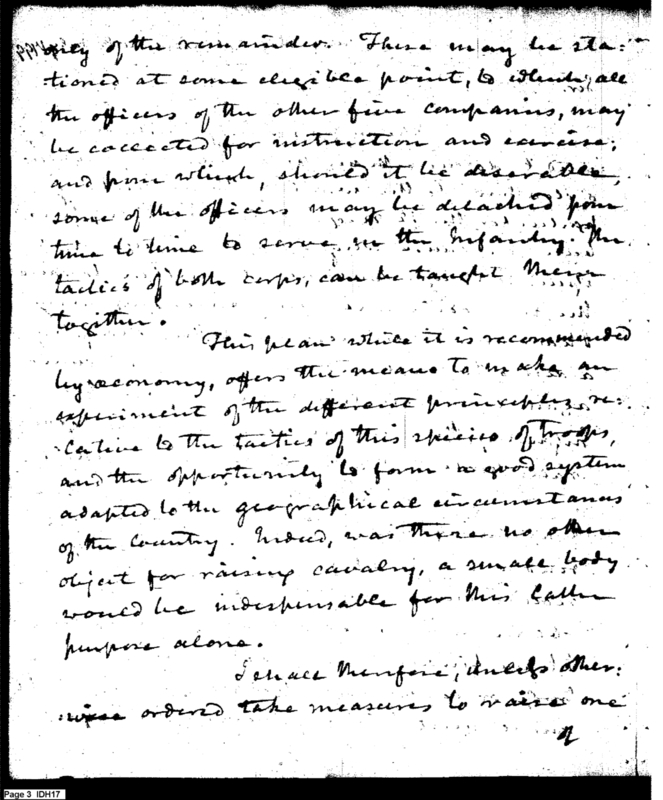 of the remainder. These may be sta:
tioned at some eligible point, to which, all
the officers of the other five companies, may
be collected for instruction and exercise;
and from which, should it be desirable,
some of the officers may be detached from
time to time to serve in the Infantry. The
tactics of both corps, can be taught them
together.
This plan while it is recommended
by œconomy, offers the means to make an
experiment of the different principles re:
lative to the tactics of this species of troops,
and the opportunity to form a good system
adapted to the geographical circumstances
of the Country. Indeed, was there no other
object for raising cavalry, a small body
would be indispensable for this latter
purpose alone.
I shall therefore, unless other:
wise ordered take measures to raise one
of
Page 3 IDH17